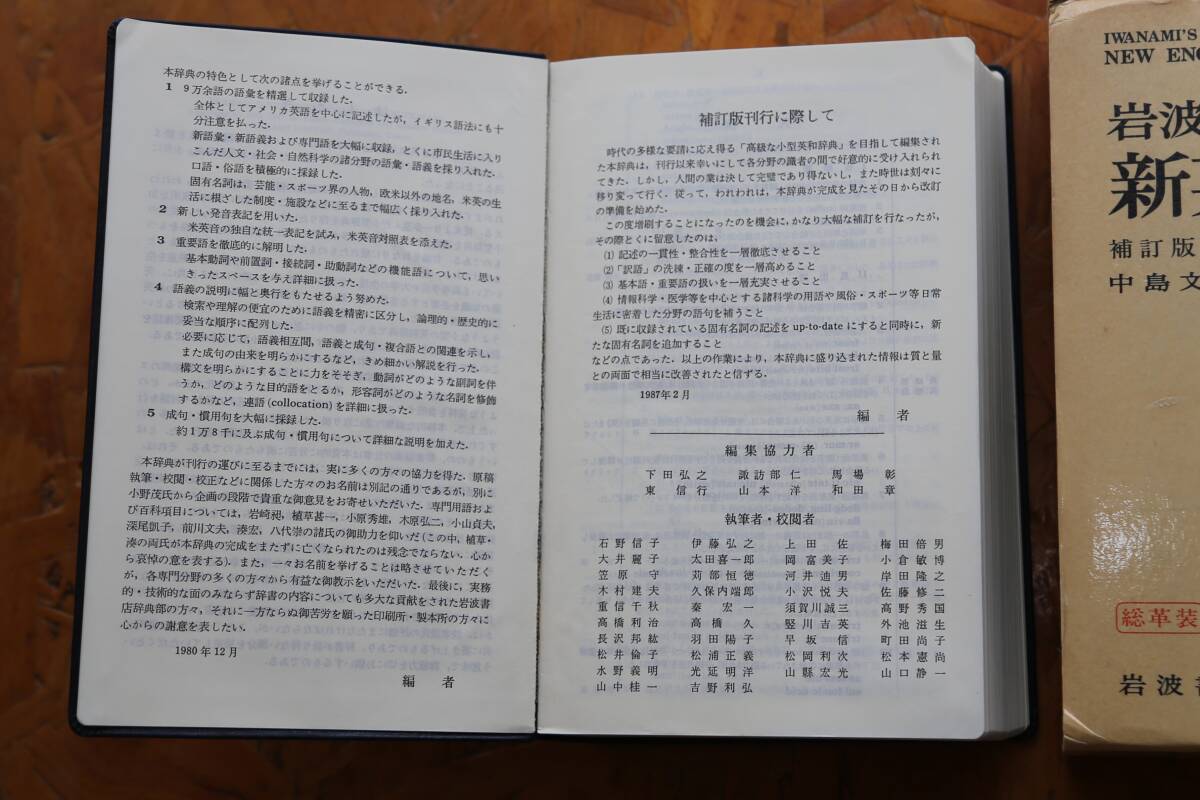 本辞典の特色として次の諸点を挙げることができる.
1 9万余語の語彙を精選して収録した.
全体としてアメリカ英語を中心に記述したが, イギリス語法にも十
分注意を払った.
新語彙・新語義および専門語を大幅に収録, とくに市民生活に入り
こんだ人文・社会・自然科学の諸分野の語彙・語義を採り入れた.
口語・俗語を積極的に採録した.
固有名詞は, 芸能・スポーツ界の人物, 欧米以外の地名, 米英の生
活に根ざした制度・施設などに至るまで幅広く採り入れた.
2 新しい発音表記を用いた.
米英音の独自な統一表記を試み, 米英音対照表を添えた.
3 重要語を徹底的に解明した.
基本動詞や前置詞・接続詞・助動詞などの機能語について, 思い
きったスペースを与え詳細に扱った.
4 語義の説明に幅と奥行をもたせるよう努めた.
検索や理解の便宜のために語義を精密に区分し, 論理的・歴史的に
妥当な順序に配列した.
必要に応じて, 語義相互間, 語義と成句・複合語との関連を示し,
また成句の由来を明らかにするなど, きめ細かい解説を行った.
構文を明らかにすることに力をそそぎ, 動詞がどのような副詞を伴
うか, どのような目的語をとるか, 形容詞がどのような名詞を修飾
するかなど, 連語 (collocation) を詳細に扱った.
5 成句・慣用句を大幅に採録した.
約1万8千に及ぶ成句・慣用句について詳細な説明を加えた.
本辞典が刊行の運びに至るまでには, 実に多くの方々の協力を得た. 原稿
執筆・校閲・校正などに関係した方々のお名前は別記の通りであるが, 別に
小野茂氏から企画の段階で貴重な御意見をお寄せいただいた. 専門用語およ
び百科項目については, 岩崎昶, 植草甚一, 小原秀雄, 木原弘二, 小山貞夫,
深尾凱子, 前川文夫, 湊宏, 八代崇の諸氏の御助力を仰いだ (この中, 植草・
湊の両氏が本辞典の完成をまたずに亡くなられたのは残念でならない. 心か
ら哀悼の意を表する). また, 一々お名前を挙げることは略させていただく
が, 各専門分野の多くの方々から有益な御教示をいただいた. 最後に, 実務
的・技術的な面のみならず辞書の内容についても多大な貢献をされた岩波書
店辞典部の方々, それに一方ならぬ御苦労を願った印刷所・製本所の方々に
心からの謝意を表したい.
1980年12月
編 者
補訂版刊行に際して
時代の多様な要請に応え得る「高級な小型英和辞典」を目指して編集され
た本辞典は, 刊行以来幸いにして各分野の識者の間で好意的に受け入れられ
てきた. しかし, 人間の業は決して完璧であり得ないし, また時世は刻々に
移り変って行く. 従って, われわれは, 本辞典が完成を見たその日から改訂
の準備を始めた.
この度増刷することになったのを機会に, かなり大幅な補訂を行なったが,
その際とくに留意したのは,
(1) 記述の一貫性・整合性を一層徹底させること
(2) 「訳語」の洗練・正確の度を一層高めること
(3) 基本語・重要語の扱いを一層充実させること
(4) 情報科学・医学等を中心とする諸科学の用語や風俗・スポーツ等日常
生活に密着した分野の語句を補うこと
(5) 既に収録されている固有名詞の記述を up-to-date にすると同時に, 新
たな固有名詞を追加すること
などの点であった. 以上の作業により, 本辞典に盛り込まれた情報は質と量
との両面で相当に改善されたと信ずる.
1987年2月
編 者
編集協力者
下田弘之 諏訪部仁 馬場彰
東信行 山本洋 和田章
執筆者・校閲者
石野信子 伊藤弘之 上田佐 梅田倍男
大井麗子 太田喜一郎 岡富美子 小倉敏博
笠原守 苅部恒徳 河井迪男 岸田隆之
木村建夫 久保内端郎 小沢悦夫 佐藤修二
重信千秋 秦宏一 須賀川誠三 高野秀国
高橋利治 高橋久 竪川吉英 外池滋生
長沢邦紘 羽田陽子 早坂信 町田尚子
松井倫子 松浦正義 松岡利次 松本憲尚
水野義明 光延明洋 山縣宏光 山口静一
山中桂一 吉野利弘
IWANAMI'S
NEW ENG
岩波
新
補訂版
中島文
総革装
岩波書